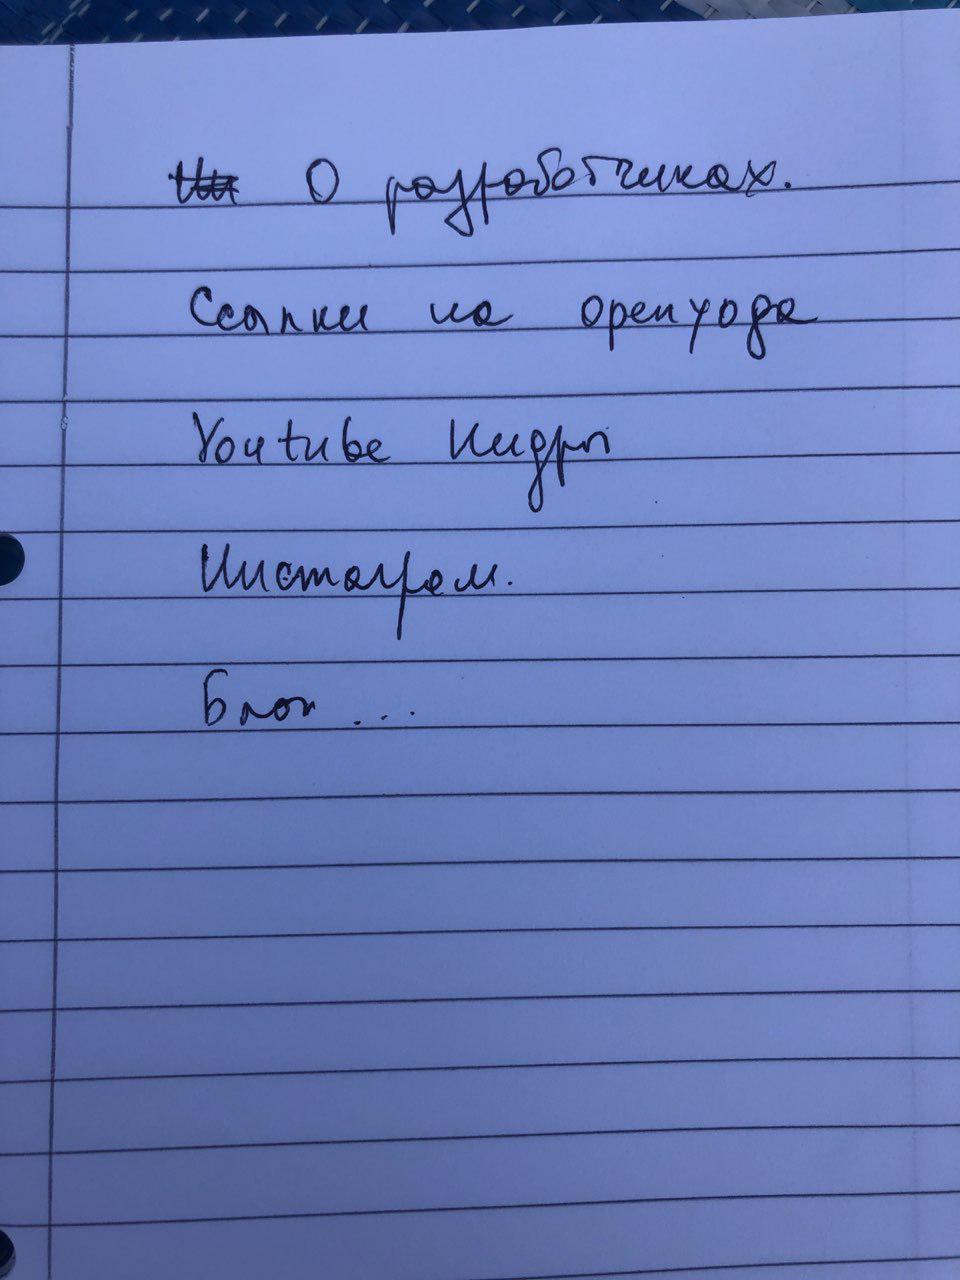 О разработчиках.
Ссылки на openyoga
Youtube Индры
Инстаграм.
Блог ...